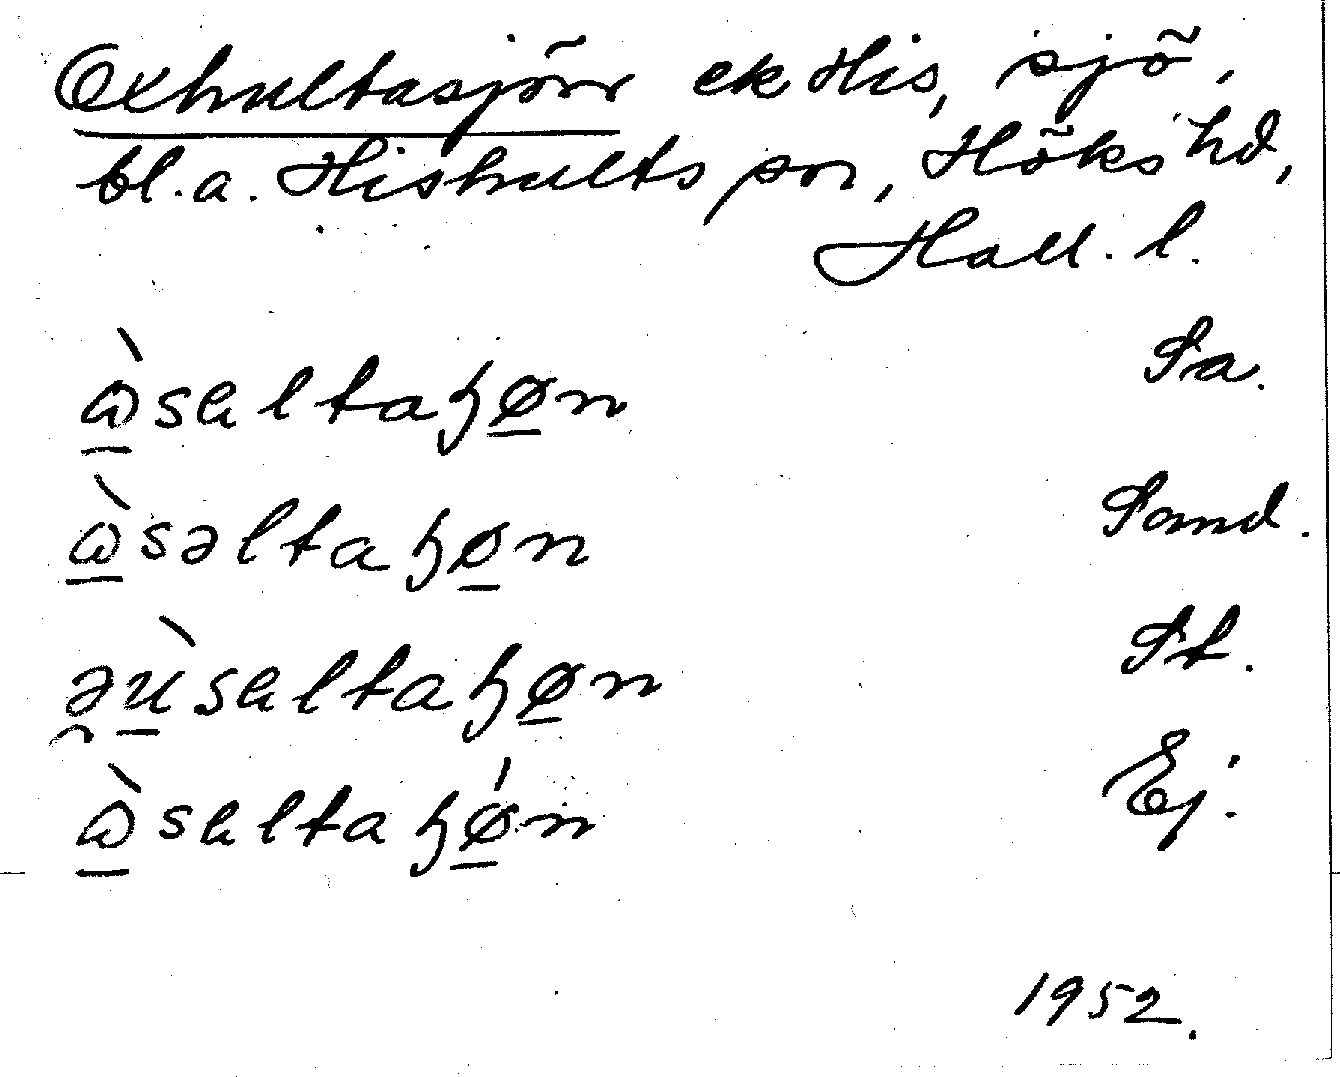 Oxhultasjön ek His, sjö,
bl.a. Hishults sn, Höks hd,
Hall. l.
ɷ̀sɐltaɧøn Sa.
ɷ̀səltaɧøn Smd.
əù̯sɐltaɧøn St.
ɷ̀sɐltaɧǿn Ej.
1952.